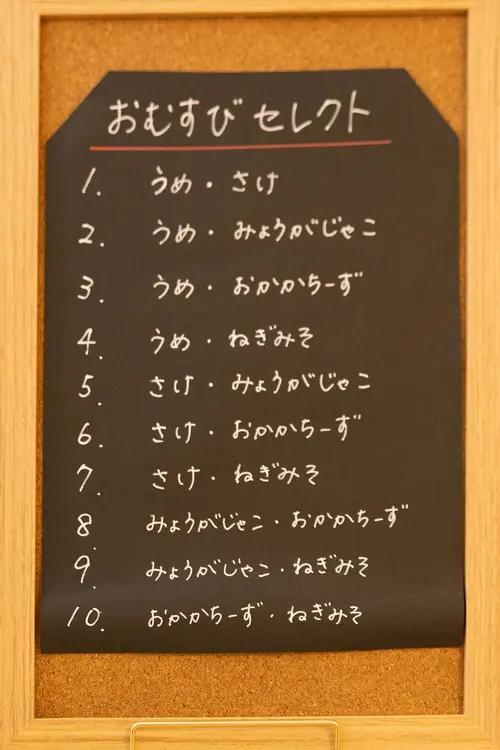 おむすびセレクト
1. うめ・さけ
2. うめ・みょうがじゃこ
3. うめ・おかかちーず
4. うめ・ねぎみそ
5. さけ・みょうがじゃこ
6. さけ・おかかちーず
7. さけ・ねぎみそ
8. みょうがじゃこ・おかかちーず
9. みょうがじゃこ・ねぎみそ
10. おかかちーず・ねぎみそ